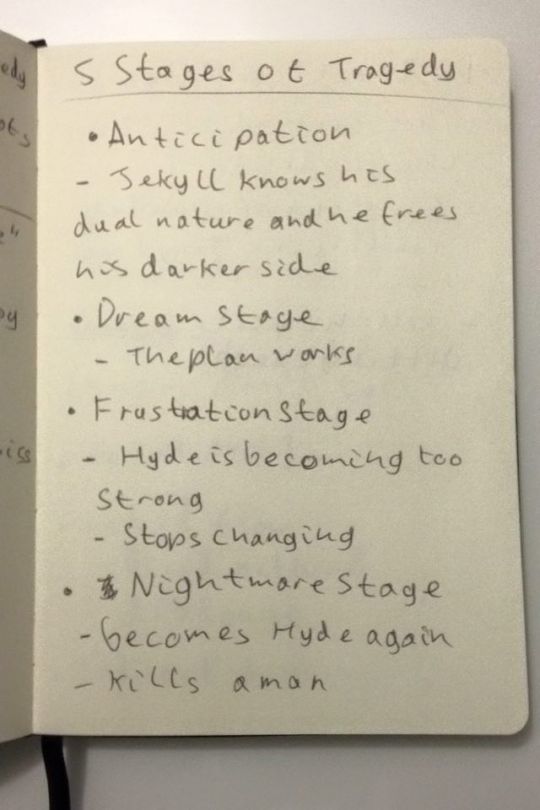 edy
5 Stages of Tragedy
• Anticipation
- Jekyll knows his
dual nature and he frees
his darker side
• Dream Stage
- The plan works
• Frustration Stage
- Hyde is becoming too
Strong
- Stops changing
• Nightmare Stage
- becomes Hyde again
- kills a man